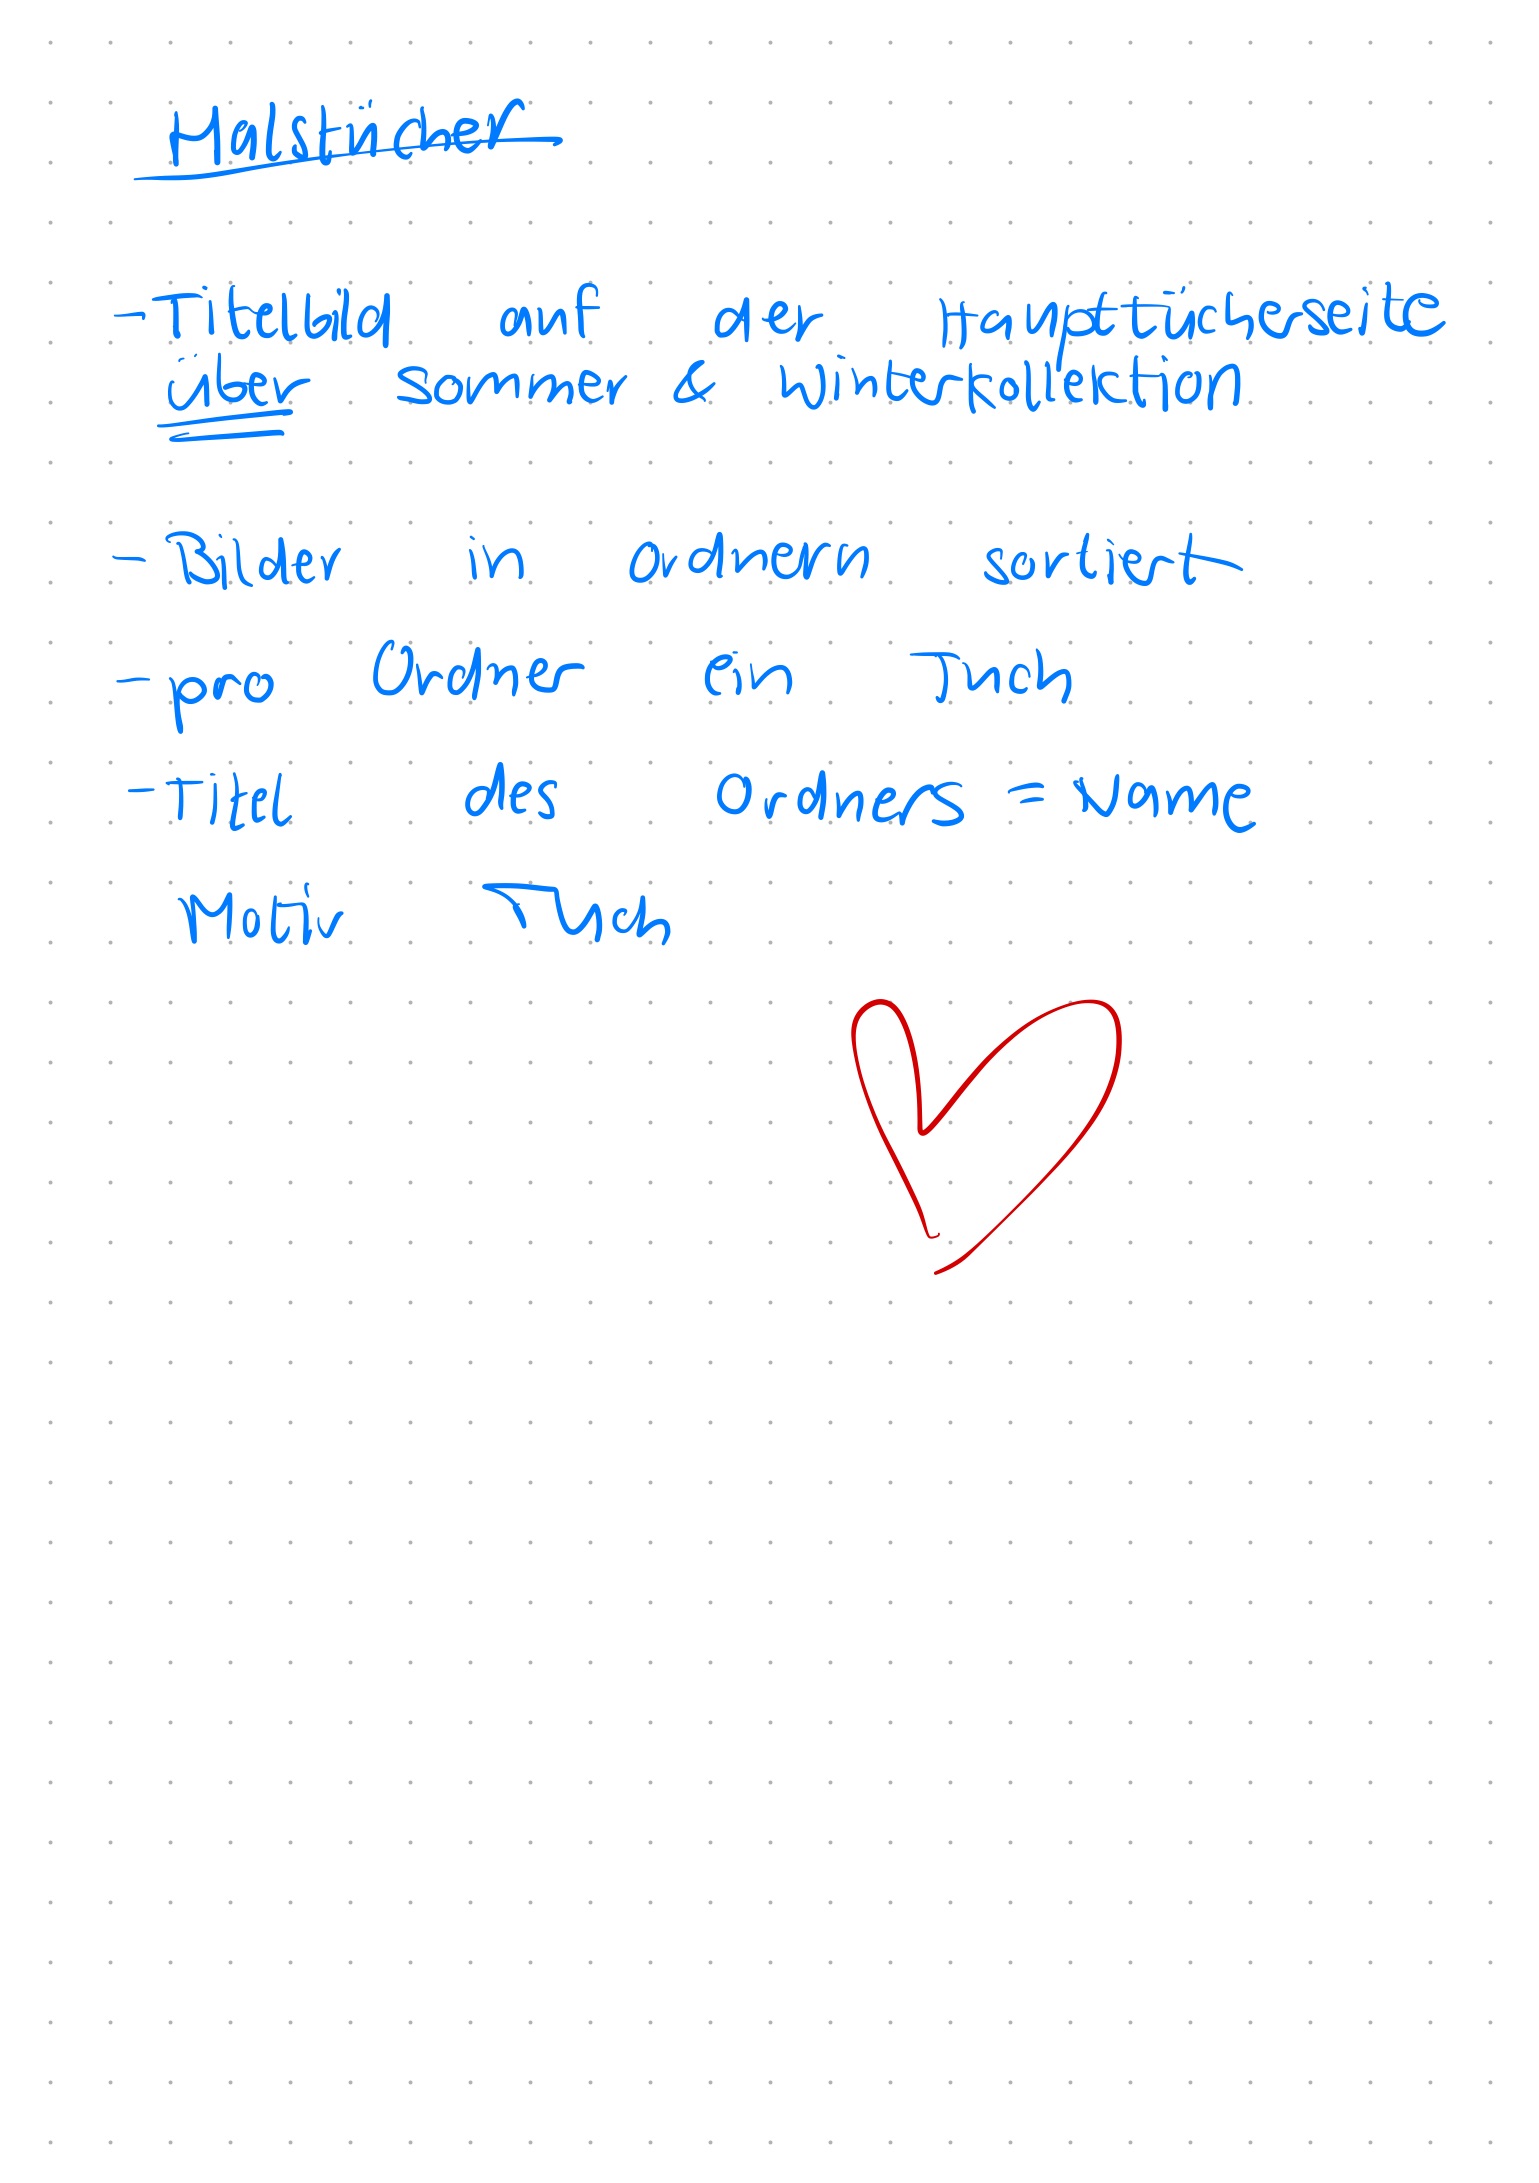 Halstücher
- Titelbild auf der Haupttücherseite
über Sommer & Winterkollektion
- Bilder in Ordnern sortiert
- pro Ordner ein Tuch
- Titel des Ordners = Name
Motiv Tuch